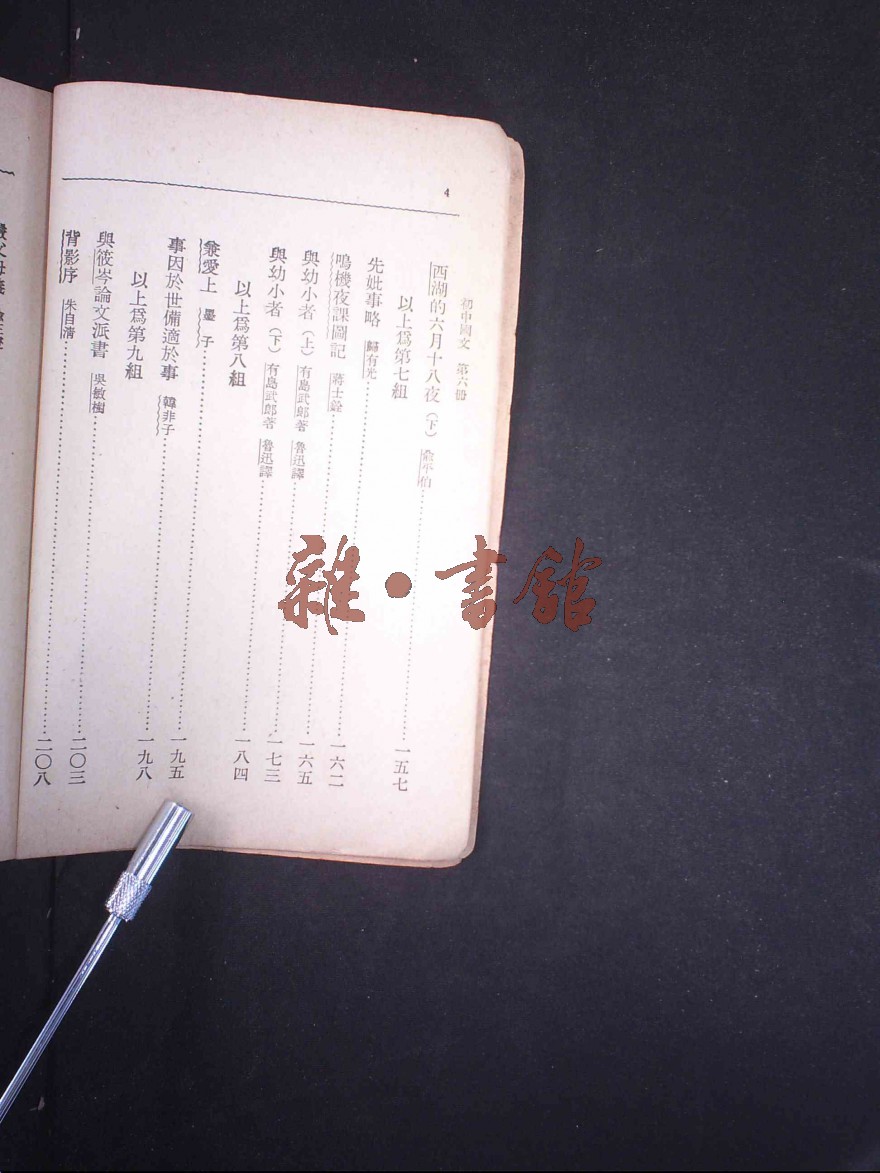 4
初中國文 第六册
西湖的六月十八夜（下） 俞平伯……一五七
以上爲第七組
先妣事略 歸有光……一六二
鳴機夜課圖記 蔣士銓……一六五
與幼小者（上） 有島武郎著 魯迅譯……一七三
與幼小者（下） 有島武郎著 魯迅譯……一八四
以上爲第八組
兼愛上 墨子……一九五
事因於世備適於事 韓非子……一九八
以上爲第九組
與筱岑論文派書 吳敏樹……二〇三
背影序 朱自清……二〇八
雜·書館